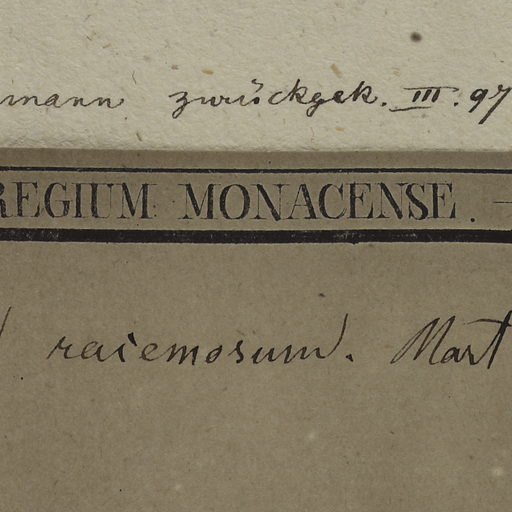 mann zurückgek. III. 97
REGIUM MONACENSE. —
racemosum. Mart